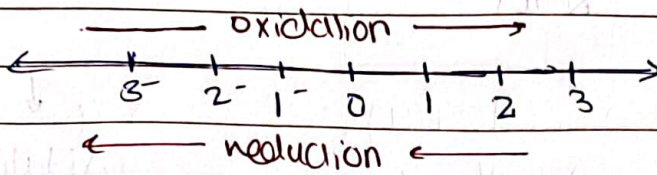 oxidation
3- 2- 1- 0 1 2 3
reduction